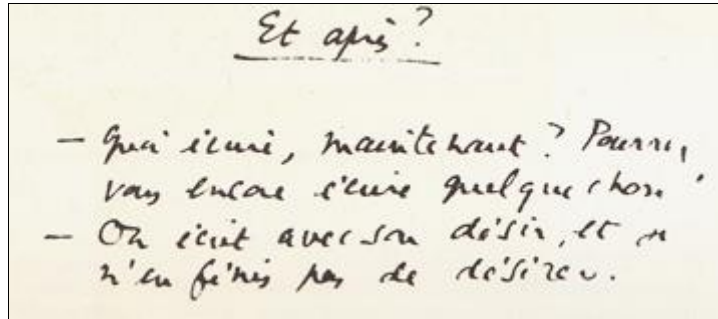 Et après?
– Quoi écrire, maintenant? Pourrez,
vous encore écrire quelque chose
– On écrit avec son désir, et je
n'en finis pas de désirer.